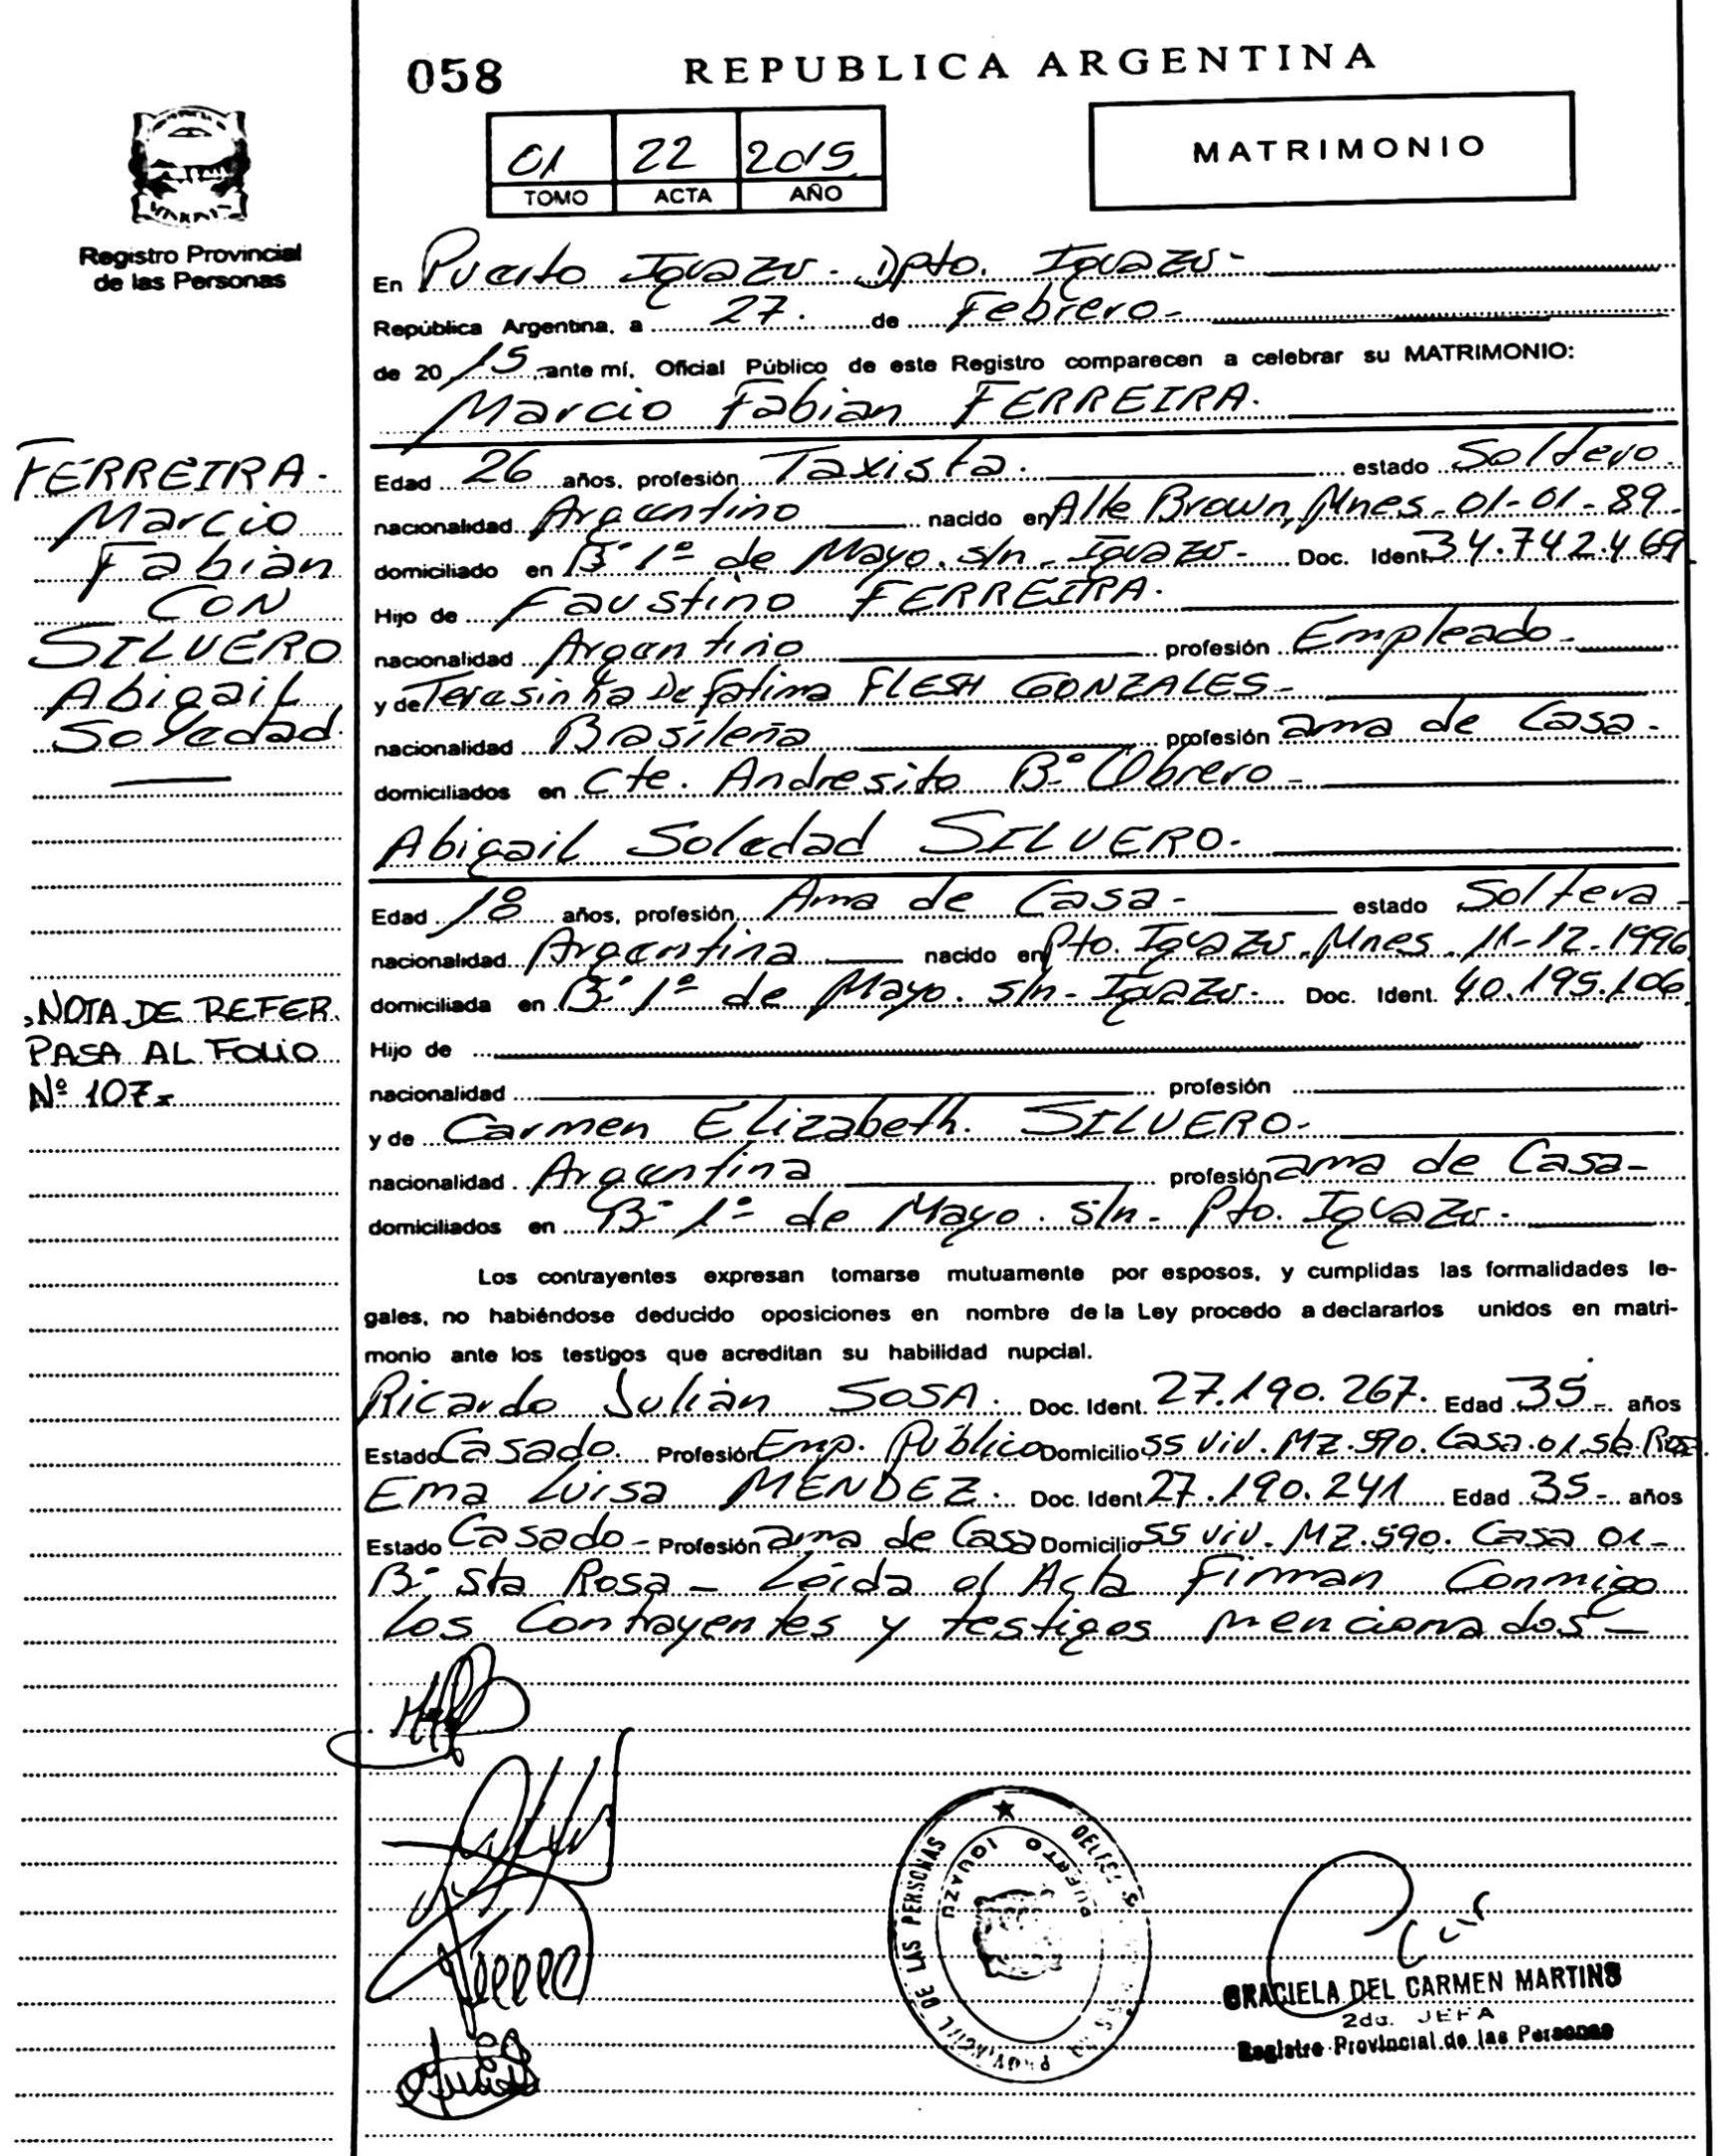 058
REPUBLICA ARGENTINA
01 22 2015
TOMO ACTA AÑO
MATRIMONIO
Registro Provincial
de las Personas
En Puerto Iguazu - Dpto. Iguazu -
República Argentina, a 27. de Febrero -
de 20 15, ante mí, Oficial Público de este Registro comparecen a celebrar su MATRIMONIO:
Marcio Fabian FERREIRA.
FERREIRA.
Marcio
Fabián
CON
SILVERO
Abigail
Soledad.
Edad 26 años, profesión Taxista. estado Soltero.
nacionalidad Argentino nacido en Alte Brown, Mnes. 01-01-89.
domiciliado en B° 1° de Mayo. s/n - Iguazu - Doc. Ident. 34.742.469
Hijo de Faustino FERREIRA.
nacionalidad Argentino profesión Empleado -
y de Teresinha De Fatima FLESH GONZALES -
nacionalidad Brasileña profesión ama de Casa -
domiciliados en Cte. Andresito B° Obrero -
Abigail Soledad SILVERO.
Edad 18 años, profesión Ama de Casa - estado Soltera -
nacionalidad Argentina nacido en Pto. Iguazu, Mnes. 11-12-1996
domiciliada en B° 1° de Mayo. s/n - Iguazu - Doc. Ident. 40.195.106
NOTA DE REFER.
PASA AL FOLIO
Nº 107
Hijo de
nacionalidad profesión
y de Carmen Elizabeth. SILVERO -
nacionalidad Argentina profesión ama de Casa -
domiciliados en B° 1° de Mayo. s/n - Pto. Iguazu -
Los contrayentes expresan tomarse mutuamente por esposos, y cumplidas las formalidades le-
gales, no habiéndose deducido oposiciones en nombre de la Ley procedo a declararlos unidos en matri-
monio ante los testigos que acreditan su habilidad nupcial.
Ricardo Julián SOSA. Doc. Ident. 27.190.267. Edad 35 - años
Estado Casado. Profesión Emp. Público Domicilio 55 viv. MZ. 590. Casa 01. Sta. Rosa.
Ema Luisa MENDEZ. Doc. Ident. 27.190.241 Edad 35 - años
Estado Casado - Profesión ama de Casa Domicilio 55 viv. MZ. 590. Casa 01 -
B° Sta Rosa - Leida el Acta Firman Conmigo
los Contrayentes y testigos mencionados -
PROVINCIAL DE LAS PERSONAS
PUERTO IGUAZU
GRACIELA DEL CARMEN MARTINS
2da. JEFA
Registro Provincial de las Personas